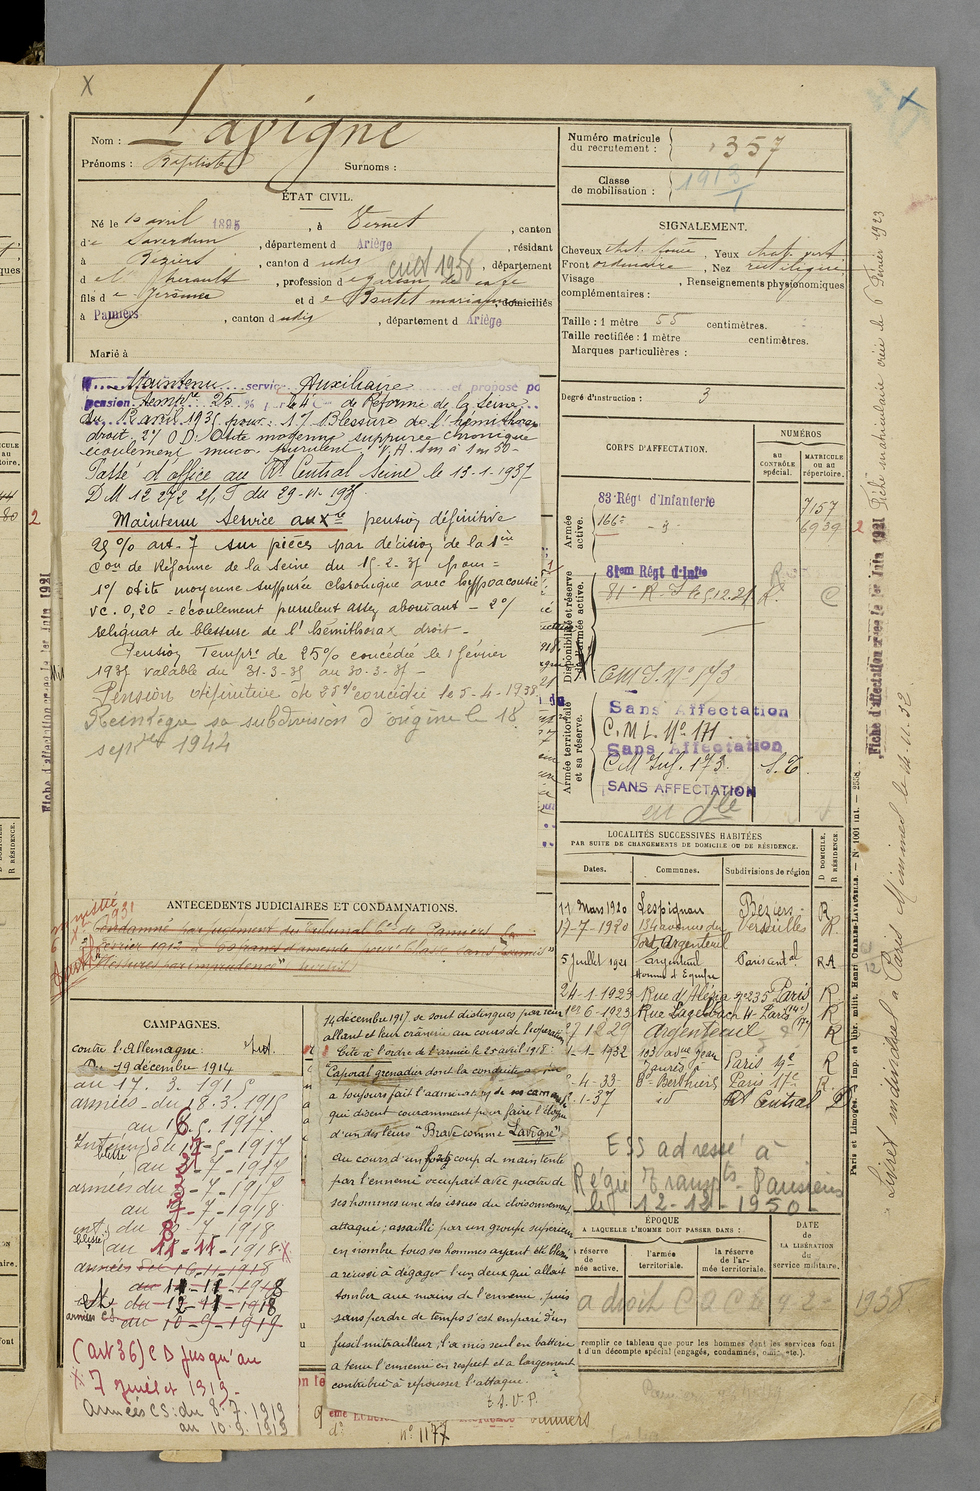 Nom : Lavigne
Prénoms : Baptiste Surnoms :
Numéro matricule du recrutement : 357
Classe de mobilisation : 1913
ÉTAT CIVIL.
Né le 10 avril 1895, à Vernet, canton
de Saverdun, département d Ariège, résidant
à Béziers, canton d udis, département
d e l'herault, profession d e garçon de café
fils d e Jérôme et d e Boutet mariann domiciliés
à Pamiers, canton d udis, département d Ariège
Marié à
SIGNALEMENT.
Cheveux chat. foncé, Yeux chat. vert
Front ordinaire, Nez rectiligne
Visage, Renseignements physionomiques
complémentaires :
Taille : 1 mètre 55 centimètres.
Taille rectifiée : 1 mètre centimètres.
Marques particulières :
Degré d'instruction : 3
Maintenu service Auxiliaire et proposé po
pension temp.re 25 % de Réforme de la Seine
du 12 avril 1935 pour : 1°/ Blessure de l'hémithorax
droit 2°/ O D: Otite moyenne suppurée chronique
écoulement muco purulent V.H. 1m à 1m50-
Passé d'office au Bt Central Seine le 13-1-1937
D M 12 272 2/1 S du 29-11-193
Maintenu Service auxre pension définitive
25 % art. 7 sur pièces par décision de la 1ère
Con de Réforme de la Seine du 15-2-37 pour =
1°/ otite moyenne suppurée chronique avec hypoacousie
vc. 0,20 = écoulement purulent assez abondant - 2°/
reliquat de blessure de l'hémithorax droit -
Pension Tempre de 25% concédée le 1 février
193 valable du 31-3-35 au 30-3-37 -
Pension définitive de 25% concédée le 5-4-1938
Réintègre sa subdivision d'origine le 18
septbre 1944
CORPS D'AFFECTATION.
NUMÉROS
AU CONTRÔLE spécial.
MATRICULE ou au répertoire.
Armée active.
83 Régt d'Infanterie 7157
166e - 3 - 6939
Disponibilité et réserve de l'armée active.
81em Régt d'Infie
81e R.I. le 5.12.21
CMI No 173
Armée territoriale et sa réserve.
Sans Affectation
C.M.I. No 171
Sans Affectation
CM Inf. 173. S.X.
SANS AFFECTATION
LOCALITÉS SUCCESSIVES HABITÉES
PAR SUITE DE CHANGEMENTS DE DOMICILE OU DE RÉSIDENCE.
Dates. Communes. Subdivisions de région
D DOMICILE. R RÉSIDENCE.
11 Mars 1920 Lespignan Béziers R
17-7-1920 134 avenue du Port Argenteuil Versailles R.
5 juillet 1921 argenteuil Paris cent al RA
24-1-1923 Rue d'Alésia no 235 Paris R
1er 6-1923 Rue Lagelbach 4 Paris (17e) R
7 12 29 Argenteuil R
1-1-1932 103 avue Jean Jaurès Paris 19e R
-4-33 Bd Berthier Paris 17e R.
1-37 id Bt Central D
ESS adressé à
Régie Transpts Parisiens
le 12-12-1950-
ÉPOQUE
A LAQUELLE L'HOMME DOIT PASSER DANS :
DATE DE LA LIBÉRATION du service militaire.
réserve née active. l'armée territoriale. la réserve de l'armée territoriale.
a droit C D C le 4-2-1938
remplir ce tableau que pour les hommes dont les services font
t d'un décompte spécial (engagés, condamnés, omis, etc.).
ANTÉCÉDENTS JUDICIAIRES ET CONDAMNATIONS.
amnistie 1931
Condamné par jugement du Tribunal Cel de Pamiers le
février 1912 à 5 francs d'amende pour
"Blessures par imprudence" sursis
CAMPAGNES.
contre l'Allemagne :
Du 19 décembre 1914
au 17. 3. 1915
armées du 18.3.1915
au 16-5. 1917.
Intérieur blessé du 17-5-1917
au 2-7-1917
armées du 3-7-1917
au 7-7-1918
int. blessé du 8-7-1918
au 11-11-1918 X
armées du 16-11-1918
au 11-11-1918
du 12-11-1918
armées CS au 10-9-1919
(art 36) C D jusqu'au
X 7 juillet 1919-
Armées CS: du 8.7.1919
au 10.9.1919
14 décembre 1917 se sont distingués par leur
allant et leur crânerie au cours de l'opération
Cité à l'ordre de l'armée le 25 avril 1918 :
"Caporal grenadier dont la conduite
a toujours fait l'admiration de ses camarades
qui disent couramment pour faire l'éloge
d'un des leurs "Brave comme Lavigne"
Au cours d'un fort coup de main tenté
par l'ennemi occupait avec quatre de
ses hommes une des issues du cloisonnement
attaqué ; assailli par un groupe supérieur
en nombre tous ses hommes ayant été blessés
a réussi à dégager l'un d'eux qui allait
tomber aux mains de l'ennemi, puis
sans perdre de temps s'est emparé d'un
fusil mitrailleur, l'a mis seul en batterie
a tenu l'ennemi en respect et a largement
contribué à repousser l'attaque.
T.S.V.P.
Pamiers
no 1177
Fiche matriculaire créée le 6 Février 1923
Fiche d'affectation créée le 1er Juin 1921
Livret individuel à Paris Minimes le 14.11.32.
Paris et Limoges. Imp. et libr. milit. Henri CHARLES-LAVAUZELLE. - No 1001 int. - 2558.